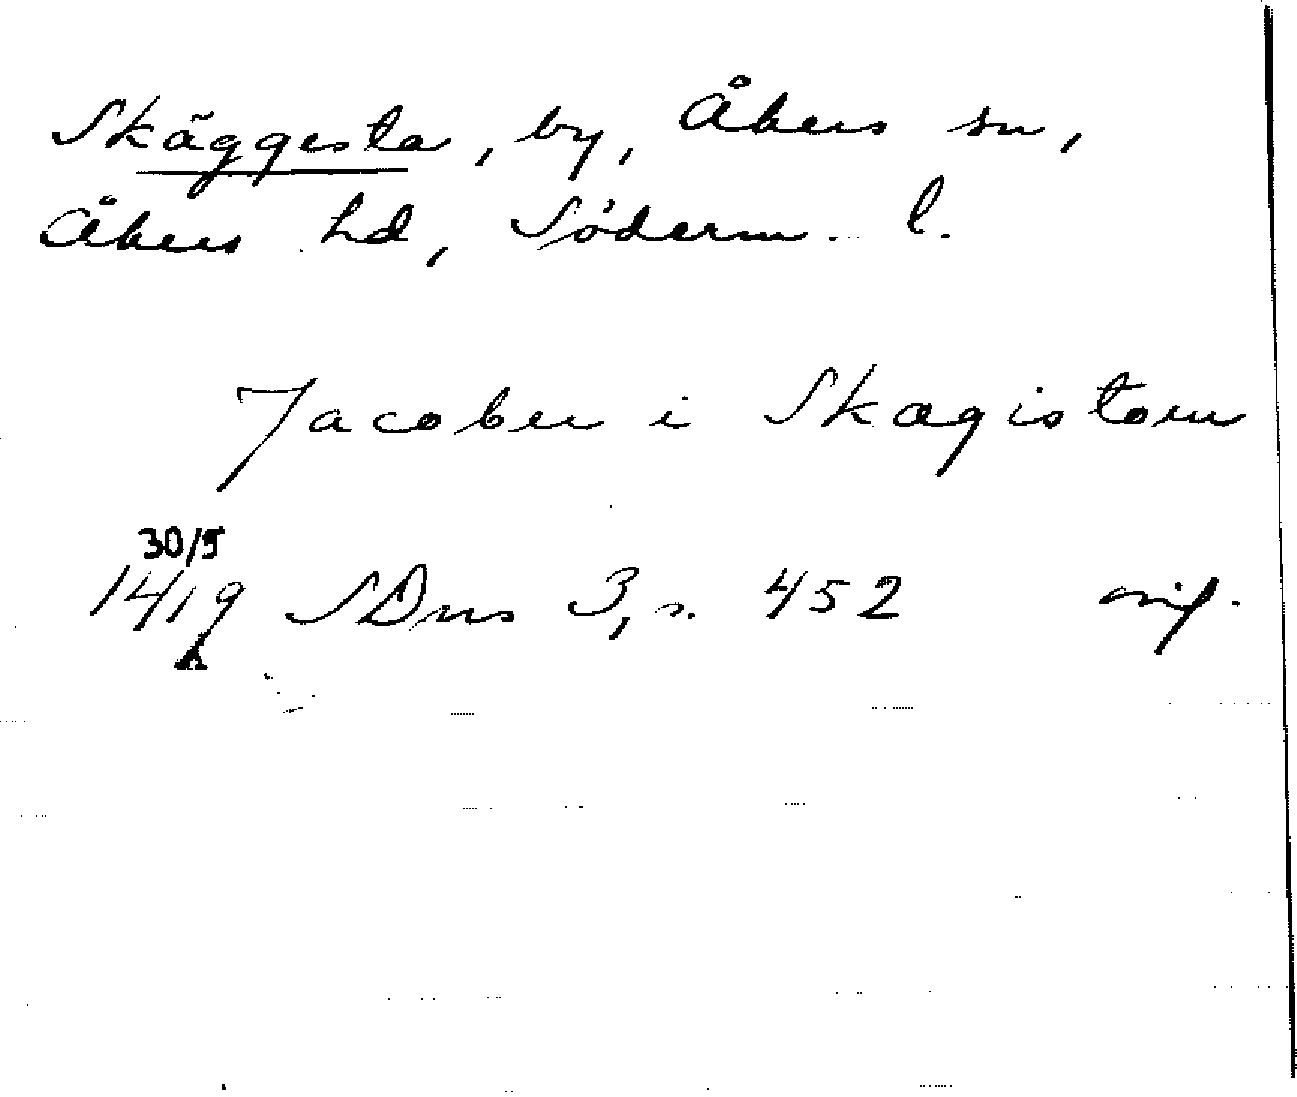 Skäggesta, by, Åkers sn,
Åkers hd, Söderm. l.
Jacober i Skægistom
30/5
1419 SDns 3, s. 452 orig.